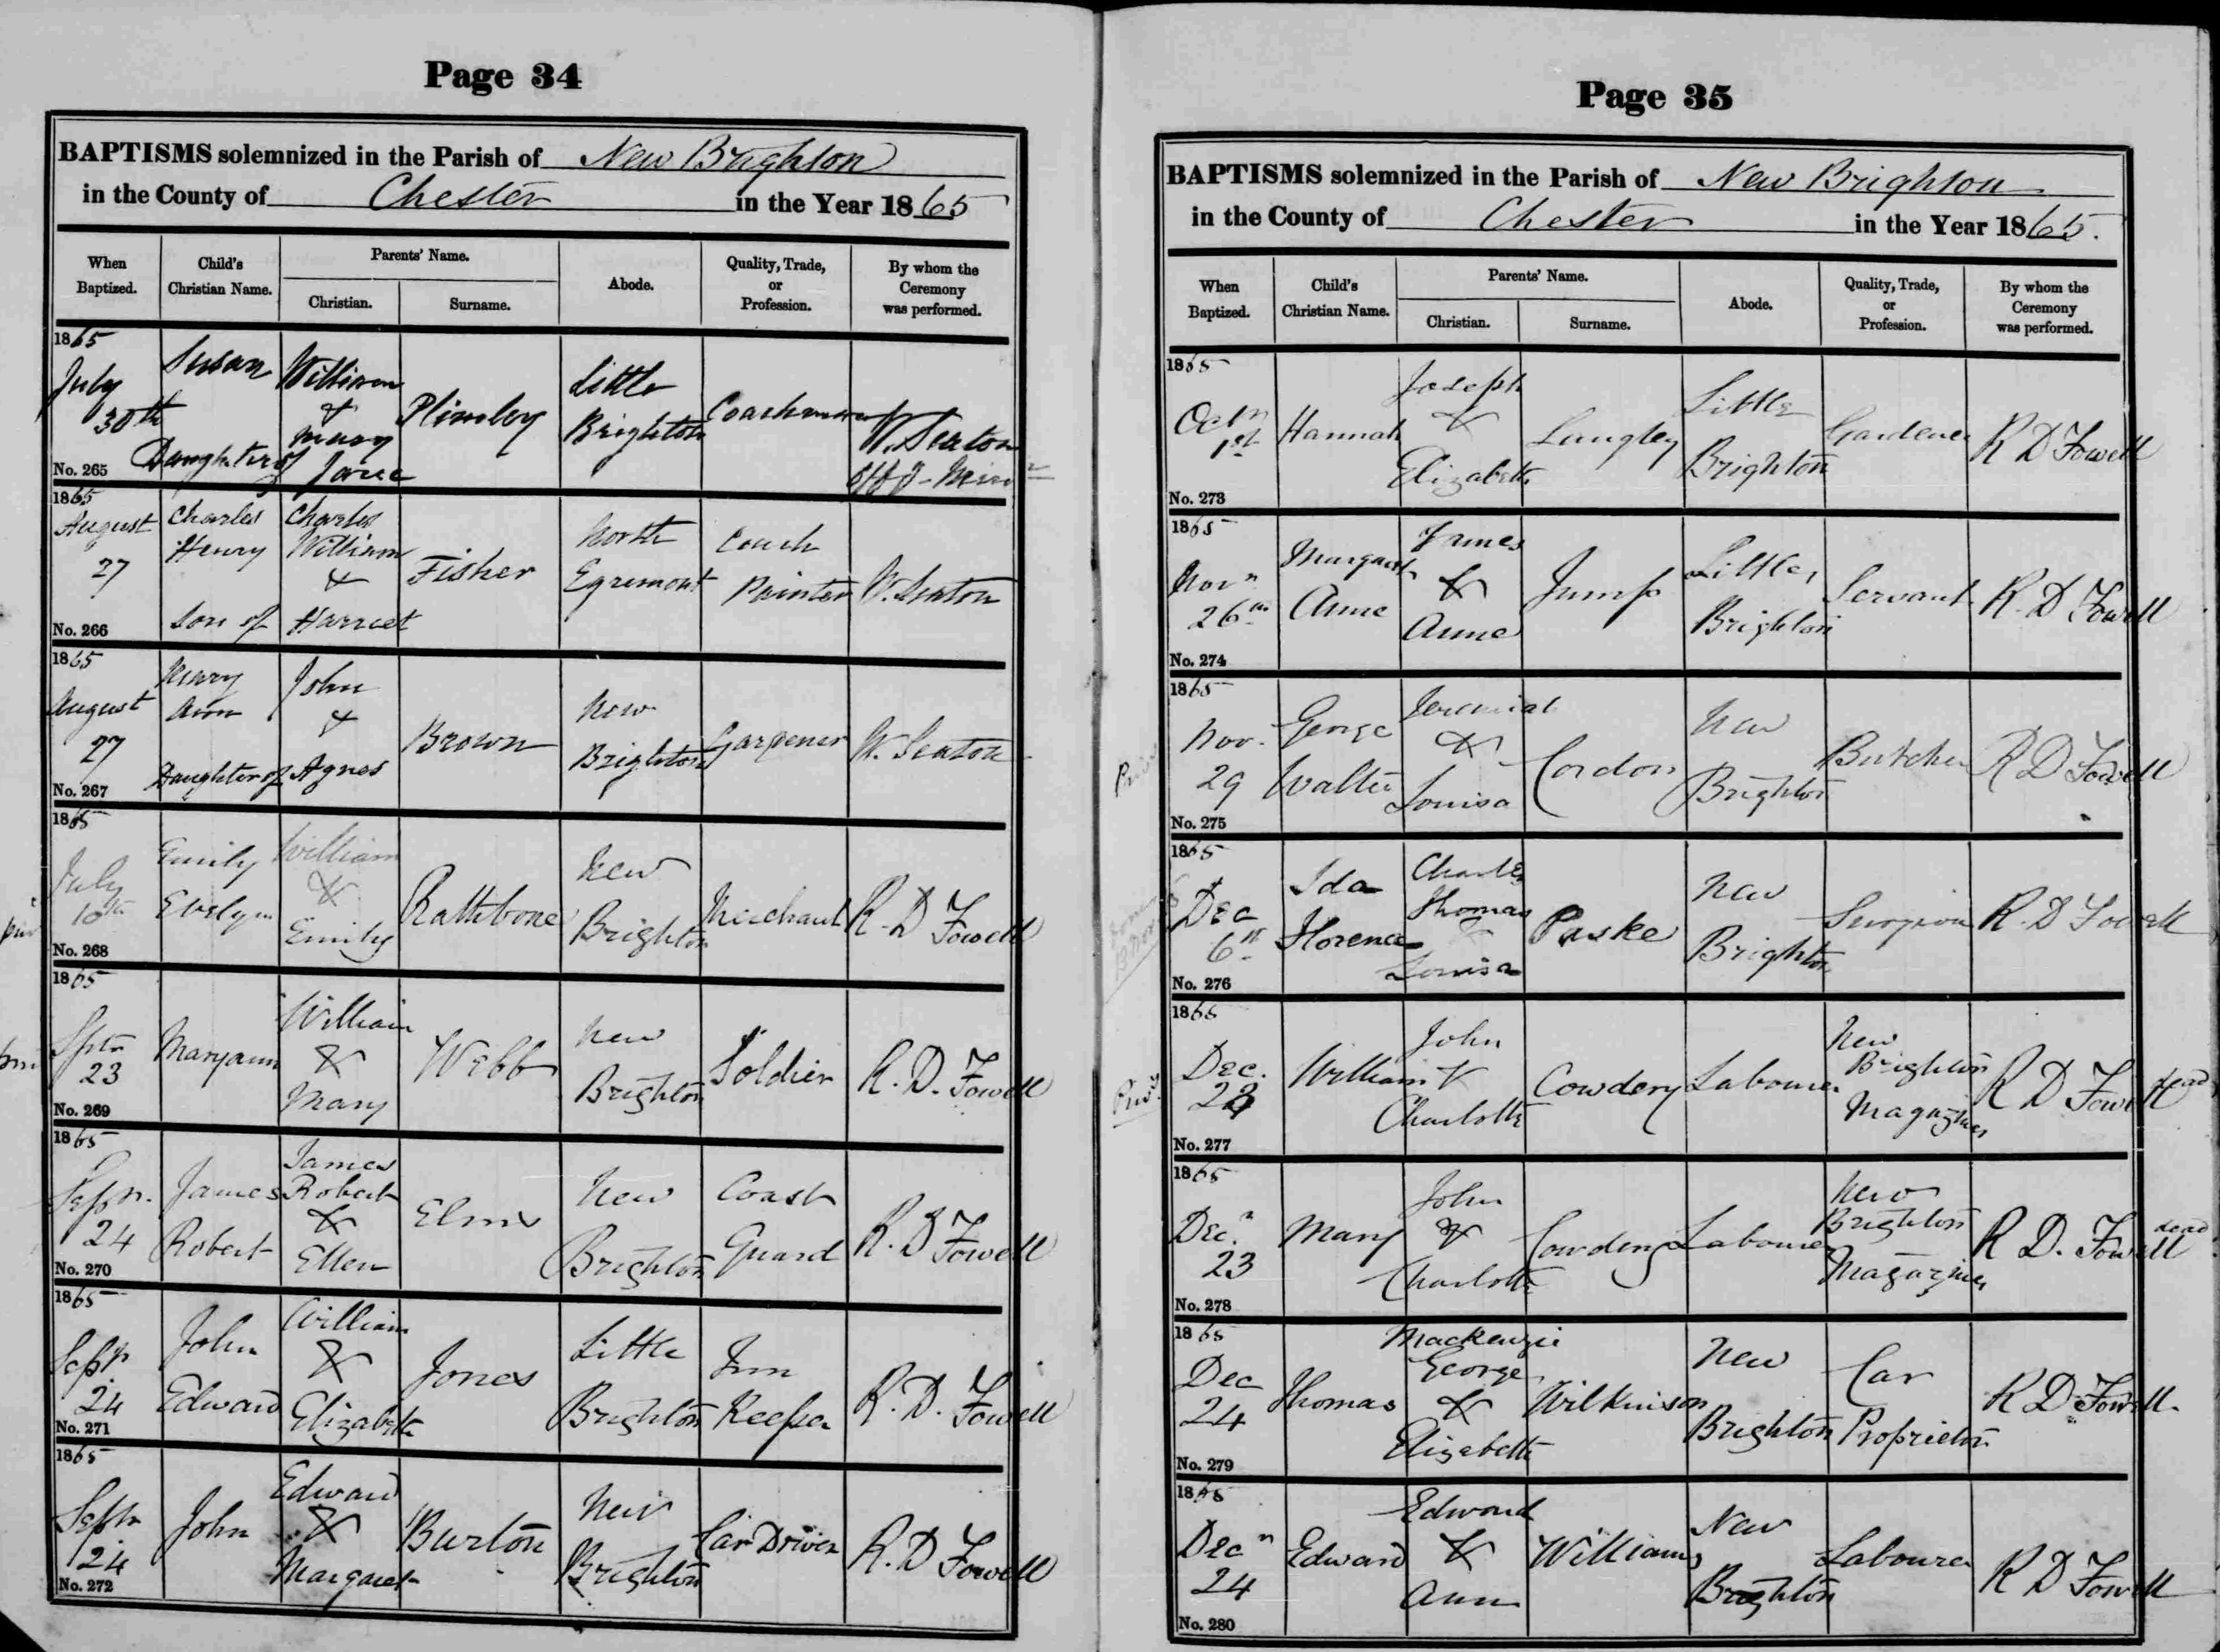 Page 34
BAPTISMS solemnized in the Parish of New Brighton
in the County of Chester in the Year 1865
When Baptized.
Child's Christian Name.
Parents' Name.
Christian.
Surname.
Abode.
Quality, Trade, or Profession.
By whom the Ceremony was performed.
1865 July 30th No. 265
Susan Daughter of
William & Mary Jane
Plimley
Little Brighton
Coachman
W. Seaton
1865 August 27 No. 266
Charles Henry son of
Charles William & Harriet
Fisher
North Egremont
Coach Painter
W. Seaton
1865 August 27 No. 267
Mary Ann Daughter of
John & Agnes
Brown
New Brighton
Gardener
W. Seaton
1865 July 10th No. 268
Emily Evelyn
William & Emily
Rathbone
New Brighton
Merchant
R. D Fowell
1865 Sptr 23 No. 269
Maryann
William & Mary
Webb
New Brighton
Soldier
R. D. Fowell
1865 Sepr. 24 No. 270
James Robert
James Robert & Ellen
Elms
New Brighton
Coast Guard
R. D Fowell
1865 Sepr 24 No. 271
John Edward
William & Elizabeth
Jones
Little Brighton
Inn Keeper
R. D. Fowell
1865 Septr 24 No. 272
John
Edward & Margaret
Burton
New Brighton
Car Driver
R. D Fowell
Page 35
BAPTISMS solemnized in the Parish of New Brighton
in the County of Chester in the Year 1865.
When Baptized.
Child's Christian Name.
Parents' Name.
Christian.
Surname.
Abode.
Quality, Trade, or Profession.
By whom the Ceremony was performed.
1865 Octr 1st No. 273
Hannah
Joseph & Elizabeth
Langley
Little Brighton
Gardener
R D Fowell
1865 Novr 26th No. 274
Margaret Anne
James & Anne
Jump
Little Brighton
Servant
R. D Fowell
1865 Nov. 29 No. 275
George Walter
Jeremiah & Louisa
Cordon
New Brighton
Butcher
R D Fowell
1865 Dec 6th No. 276
Ida Florence
Charles Thomas & Louisa
Paske
New Brighton
Surgeon
R. D Fowell
1865 Dec. 23 No. 277
William
John & Charlotte
Cowdery
Labourer
New Brighton Magazines
R D Fowell
dead
1865 Decr 23 No. 278
Mary
John & Charlotte
Cowdery
Labourer
New Brighton Magazines
R D. Fowell
dead
1865 Dec 24 No. 279
Thomas
Mackenzie George & Elizabeth
Wilkinson
New Brighton
Car Proprietor
R D Fowell
1865 Decr 24 No. 280
Edward
Edward & Ann
Williams
New Brighton
Labourer
R D Fowell